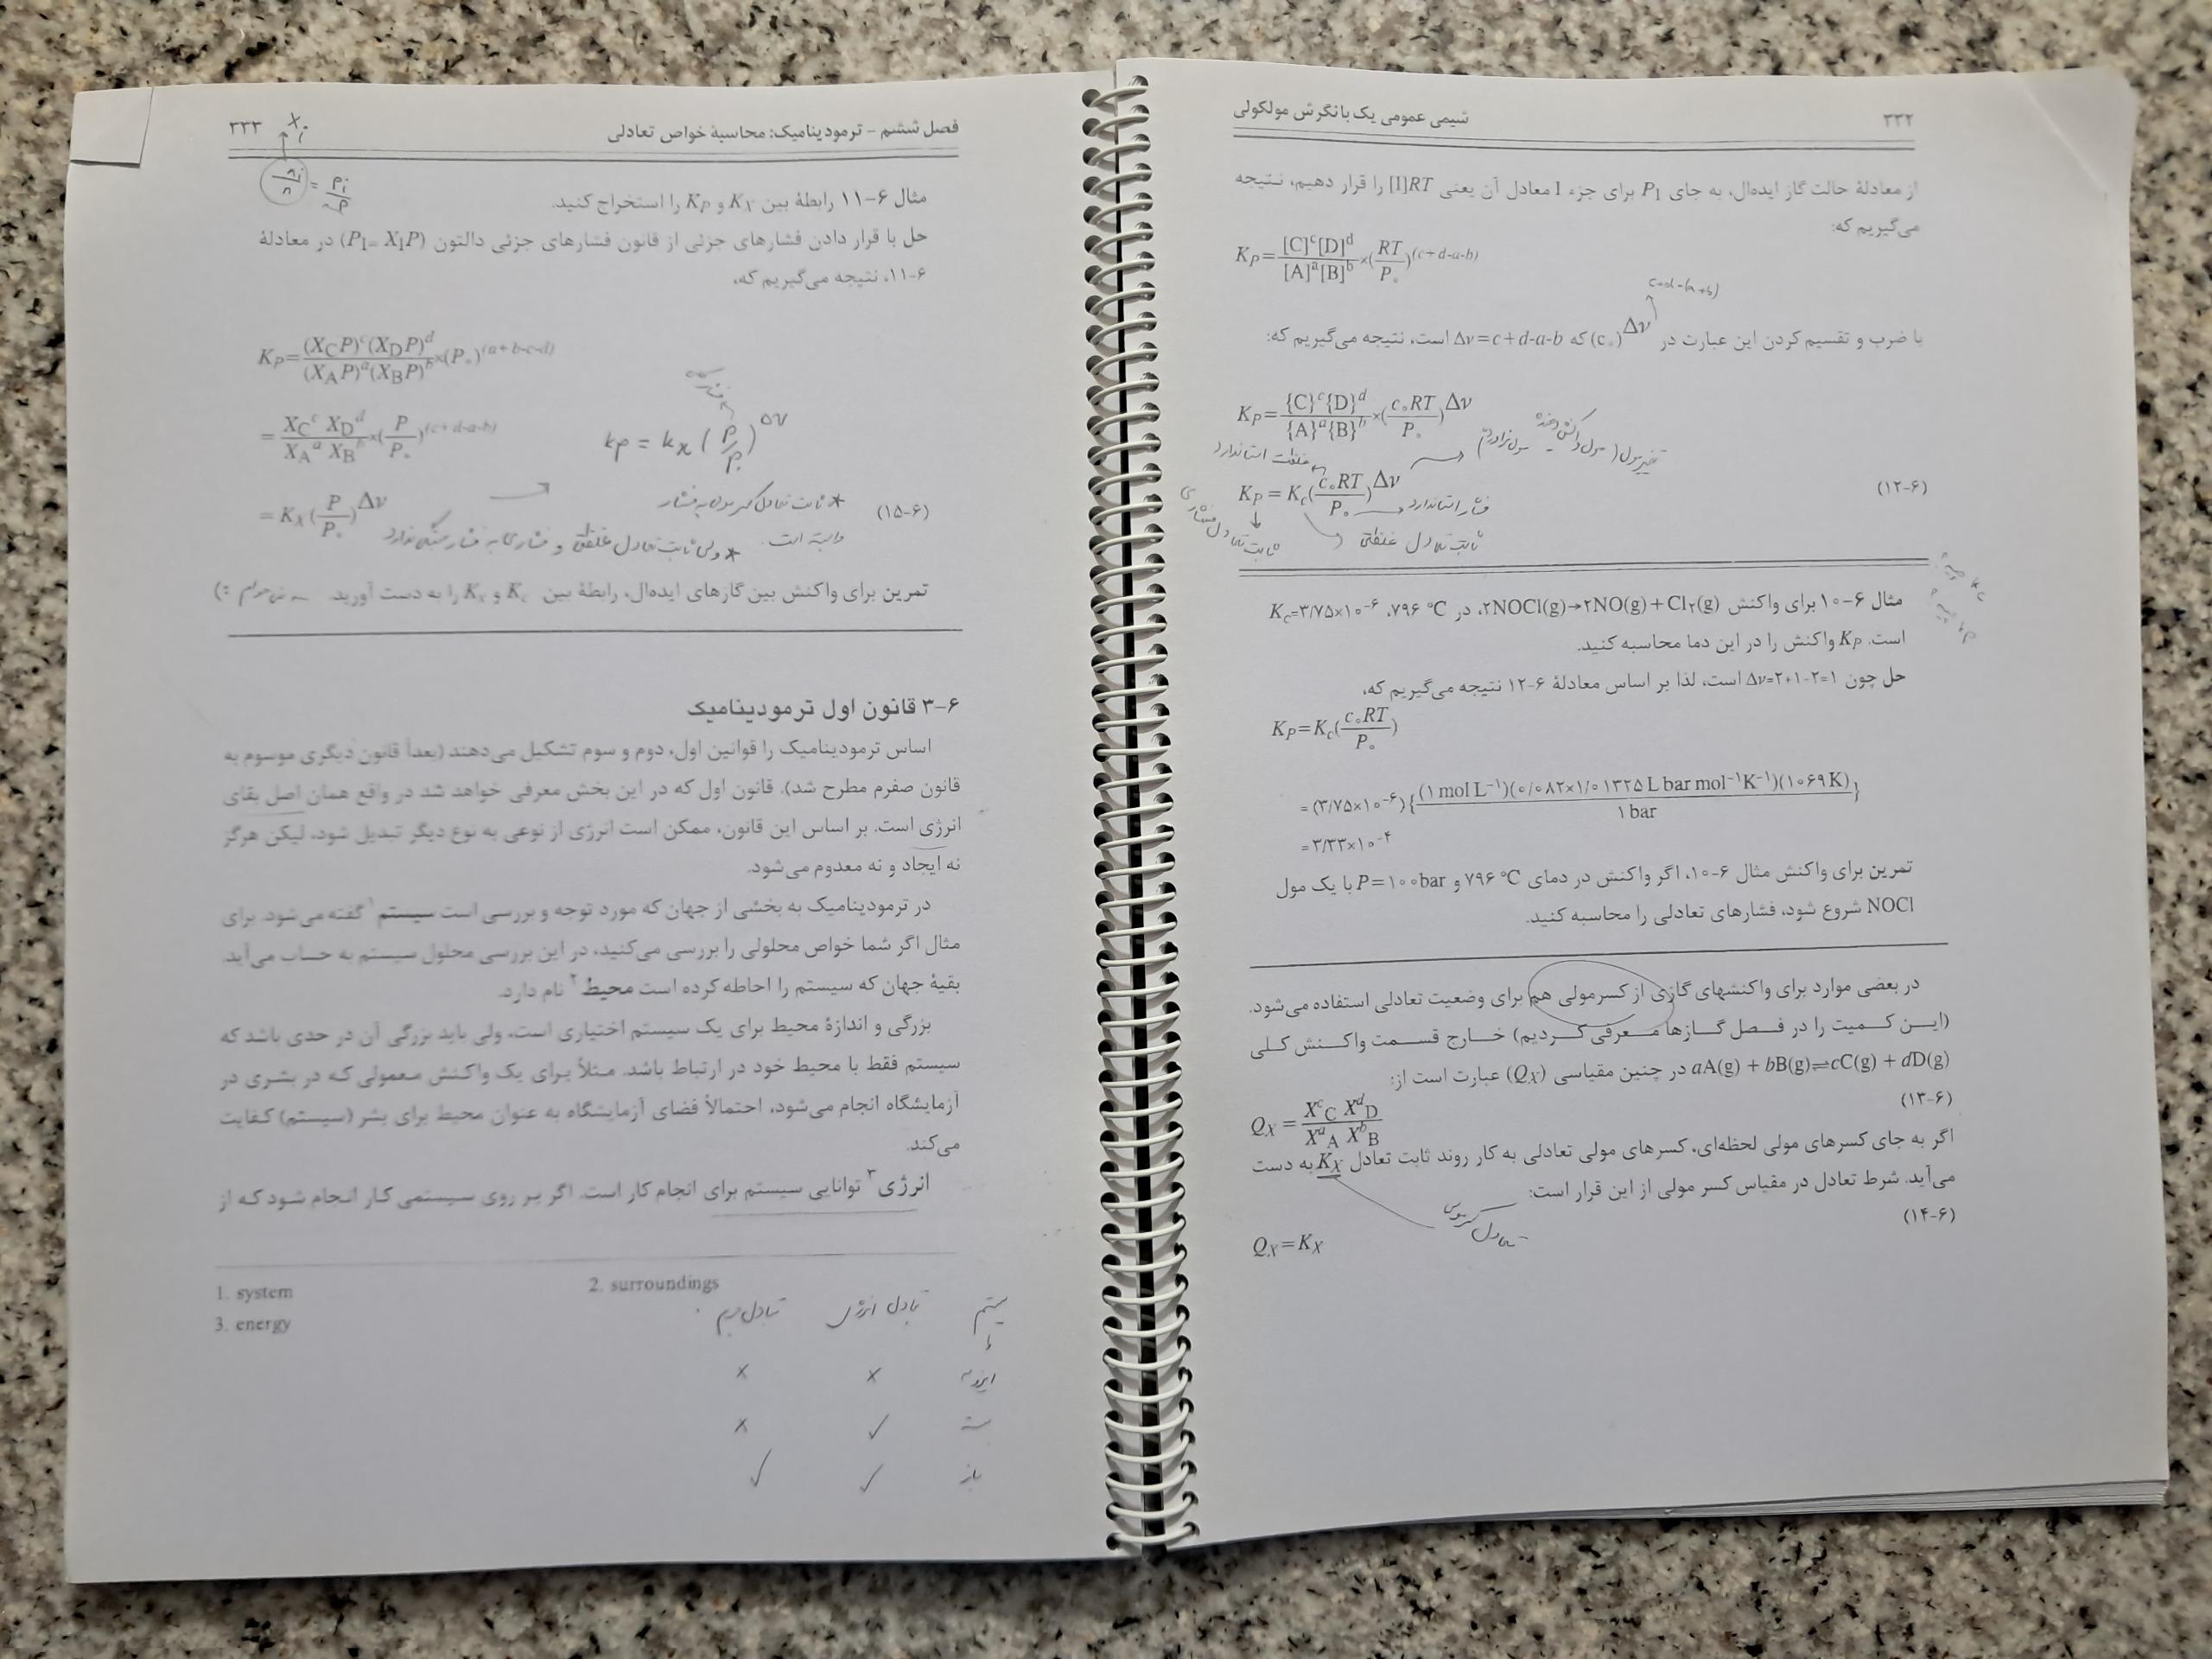 ۳۳۲
شیمی عمومی یک با نگرش مولکولی
از معادلهٔ حالت گاز ایده‌ال، به جای P_I برای جزء I معادل آن یعنی [I]RT را قرار دهیم، نتیجه
می‌گیریم که:
K_P = [C]^c[D]^d / [A]^a[B]^b × (RT / P_°)^(c+d-a-b)
c+d-(a+b)
با ضرب و تقسیم کردن این عبارت در (c_°)^Δν که Δν=c+d-a-b است، نتیجه می‌گیریم که:
K_P = {C}^c{D}^d / {A}^a{B}^b × (c_°RT / P_°)^Δν
غلظت استاندارد
K_P = K_c(c_°RT / P_°)^Δν (۶-۱۲)
فشار استاندارد
ثابت تعادل غلظتی
ثابت تعادل فشاری
مثال ۶-۱۰ برای واکنش ۲NOCl(g)→۲NO(g)+Cl_۲(g)، در ۷۹۶ °C، K_c=۳/۷۵×۱۰^-۶
است. K_P واکنش را در این دما محاسبه کنید.
حل چون Δν=۲+۱-۲=۱ است، لذا بر اساس معادلهٔ ۶-۱۲ نتیجه می‌گیریم که،
K_P=K_c(c_°RT / P_°)
= (۳/۷۵×۱۰^-۶){(۱ mol L^-۱)(۰/۰۸۲×۱/۰۱۳۲۵ L bar mol^-۱K^-۱)(۱۰۶۹ K) / ۱ bar}
= ۳/۳۳×۱۰^-۴
تمرین برای واکنش مثال ۶-۱۰، اگر واکنش در دمای ۷۹۶ °C و P=۱۰۰bar با یک مول
NOCl شروع شود، فشارهای تعادلی را محاسبه کنید.
در بعضی موارد برای واکنشهای گازی از کسرمولی هم برای وضعیت تعادلی استفاده می‌شود.
(این کمیت را در فصل گازها معرفی کردیم) خارج قسمت واکنش کلی
aA(g) + bB(g)⇌cC(g) + dD(g) در چنین مقیاسی (Q_X) عبارت است از:
(۶-۱۳)
Q_X = X^c_C X^d_D / X^a_A X^b_B
اگر به جای کسرهای مولی لحظه‌ای، کسرهای مولی تعادلی به کار روند ثابت تعادل K_X به دست
می‌آید. شرط تعادل در مقیاس کسر مولی از این قرار است:
(۶-۱۴)
Q_X=K_X
فصل ششم - ترمودینامیک: محاسبهٔ خواص تعادلی
۳۳۳
X_i
n_i / n = P_i / P
مثال ۶-۱۱ رابطهٔ بین K_X و K_P را استخراج کنید.
حل با قرار دادن فشارهای جزئی از قانون فشارهای جزئی دالتون (P_I= X_IP) در معادلهٔ
۶-۱۱، نتیجه می‌گیریم که،
K_P= (X_CP)^c(X_DP)^d / (X_AP)^a(X_BP)^b ×(P_°)^(a+b-c-d)
= X_C^c X_D^d / X_A^a X_B^b ×(P / P_°)^(c+d-a-b)
kp = kx (P / P_°)^Δν
= K_X(P / P_°)^Δν (۶-۱۵)
* ثابت تعادل کسر مولی به فشار
وابسته است.
* ولی ثابت تعادل غلظتی و فشاری به فشار بستگی ندارد
تمرین برای واکنش بین گازهای ایده‌ال، رابطهٔ بین K_c و K_x را به دست آورید.
۶-۳ قانون اول ترمودینامیک
اساس ترمودینامیک را قوانین اول، دوم و سوم تشکیل می‌دهند (بعداً قانون دیگری موسوم به
قانون صفرم مطرح شد). قانون اول که در این بخش معرفی خواهد شد در واقع همان اصل بقای
انرژی است. بر اساس این قانون، ممکن است انرژی از نوعی به نوع دیگر تبدیل شود، لیکن هرگز
نه ایجاد و نه معدوم می‌شود.
در ترمودینامیک به بخشی از جهان که مورد توجه و بررسی است سیستم۱ گفته می‌شود. برای
مثال اگر شما خواص محلولی را بررسی می‌کنید، در این بررسی محلول سیستم به حساب می‌آید.
بقیهٔ جهان که سیستم را احاطه کرده است محیط۲ نام دارد.
بزرگی و اندازهٔ محیط برای یک سیستم اختیاری است، ولی باید بزرگی آن در حدی باشد که
سیستم فقط با محیط خود در ارتباط باشد. مثلاً برای یک واکنش معمولی که در بشری در
آزمایشگاه انجام می‌شود، احتمالاً فضای آزمایشگاه به عنوان محیط برای بشر (سیستم) کفایت
می‌کند.
انرژی۳ توانایی سیستم برای انجام کار است. اگر بر روی سیستمی کار انجام شود که از
1. system
2. surroundings
3. energy
سیستم تبادل انرژی تبادل جرم
ایزوله × ×
بسته ✓ ×
باز ✓ ✓